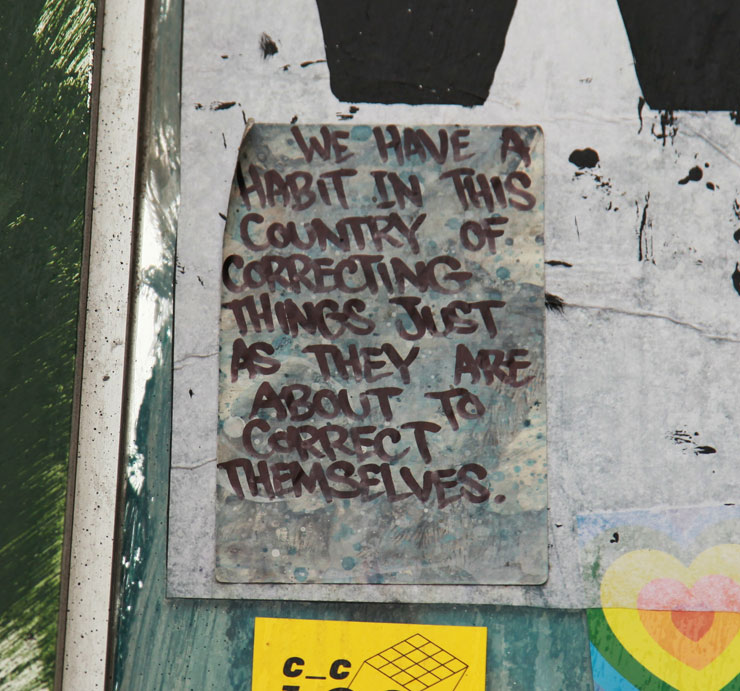 WE HAVE A
HABIT IN THIS
COUNTRY OF
CORRECTING
THINGS JUST
AS THEY ARE
ABOUT TO
CORRECT
THEMSELVES.
c_c